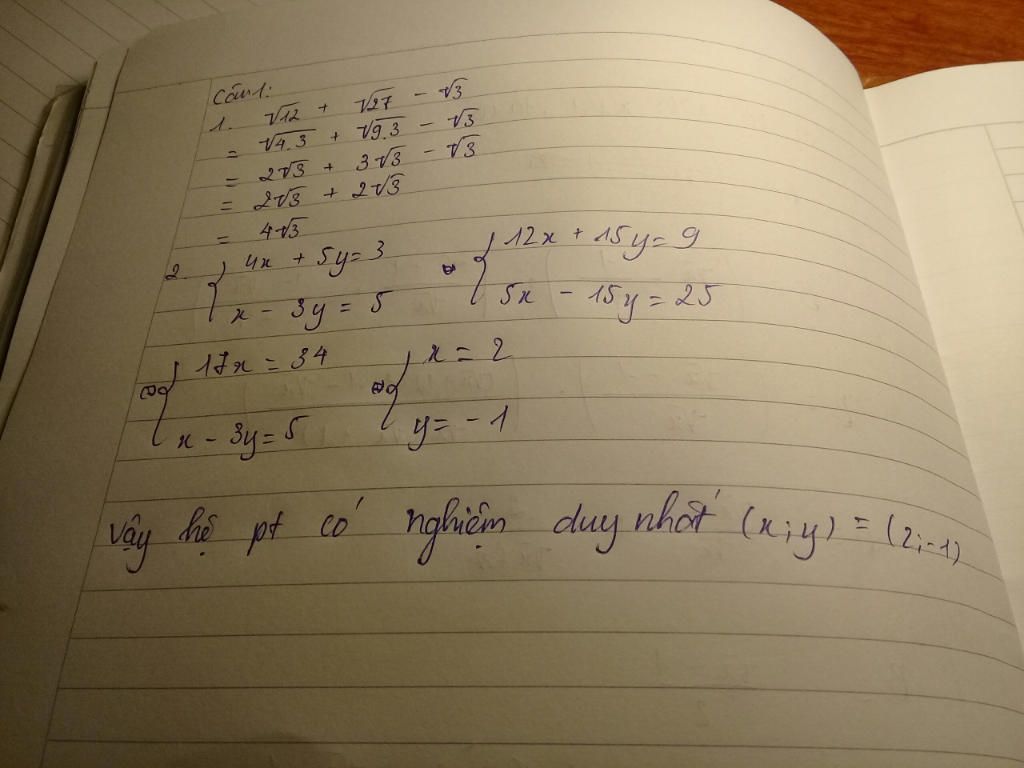 Câu 1:
1. √12 + √27 - √3
= √4.3 + √9.3 - √3
= 2√3 + 3√3 - √3
= 2√3 + 2√3
= 4√3
2. { 4x + 5y = 3 ⇔ { 12x + 15y = 9
x - 3y = 5 5x - 15y = 25
⇔ { 17x = 34 ⇔ { x = 2
x - 3y = 5 y = -1
Vậy hệ pt có nghiệm duy nhất (x;y) = (2;-1)